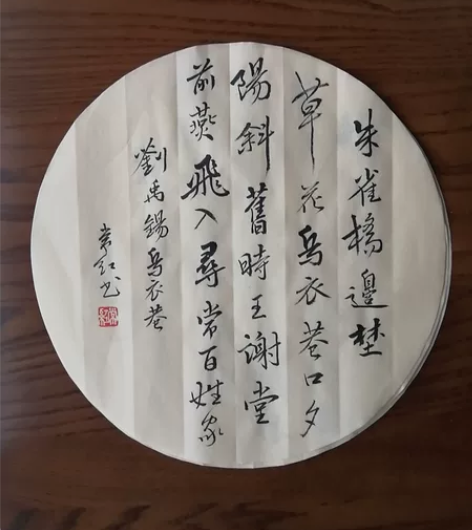 朱雀橋邊埜
草花烏衣巷口夕
陽斜舊時王謝堂
前燕飛入尋常百姓家
劉禹錫烏衣巷